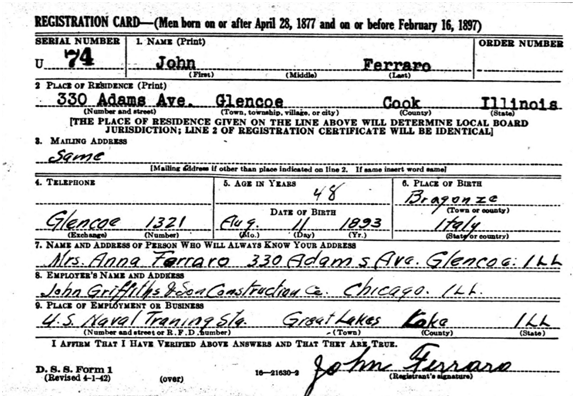 REGISTRATION CARD—(Men born on or after April 28, 1877 and on or before February 16, 1897)
SERIAL NUMBER 1. NAME (Print) ORDER NUMBER
U 74 John Ferraro
(First) (Middle) (Last)
2 PLACE OF RESIDENCE (Print)
330 Adams Ave. Glencoe Cook Illinois
(Number and street) (Town, township, village, or city) (County) (State)
[THE PLACE OF RESIDENCE GIVEN ON THE LINE ABOVE WILL DETERMINE LOCAL BOARD
JURISDICTION; LINE 2 OF REGISTRATION CERTIFICATE WILL BE IDENTICAL]
3. MAILING ADDRESS
Same
[Mailing address if other than place indicated on line 2. If same insert word same]
4. TELEPHONE 5. AGE IN YEARS 6. PLACE OF BIRTH
48 Bragonze
DATE OF BIRTH (Town or county)
Glencoe 1321 Aug. 11 1893 Italy
(Exchange) (Number) (Mo.) (Day) (Yr.) (State or country)
7. NAME AND ADDRESS OF PERSON WHO WILL ALWAYS KNOW YOUR ADDRESS
Mrs. Anna Ferraro 330 Adams Ave. Glencoe. ILL
8. EMPLOYER'S NAME AND ADDRESS
John Griffiths & Son Construction Co. Chicago. ILL.
9. PLACE OF EMPLOYMENT OR BUSINESS
U.S. Naval Traning Sta. Great Lakes Lake ILL
(Number and street or R. F. D. number) (Town) (County) (State)
I AFFIRM THAT I HAVE VERIFIED ABOVE ANSWERS AND THAT THEY ARE TRUE.
D. S. S. Form 1 John Ferraro
(Revised 4-1-42) (over) 16—21630-2 (Registrant's signature)